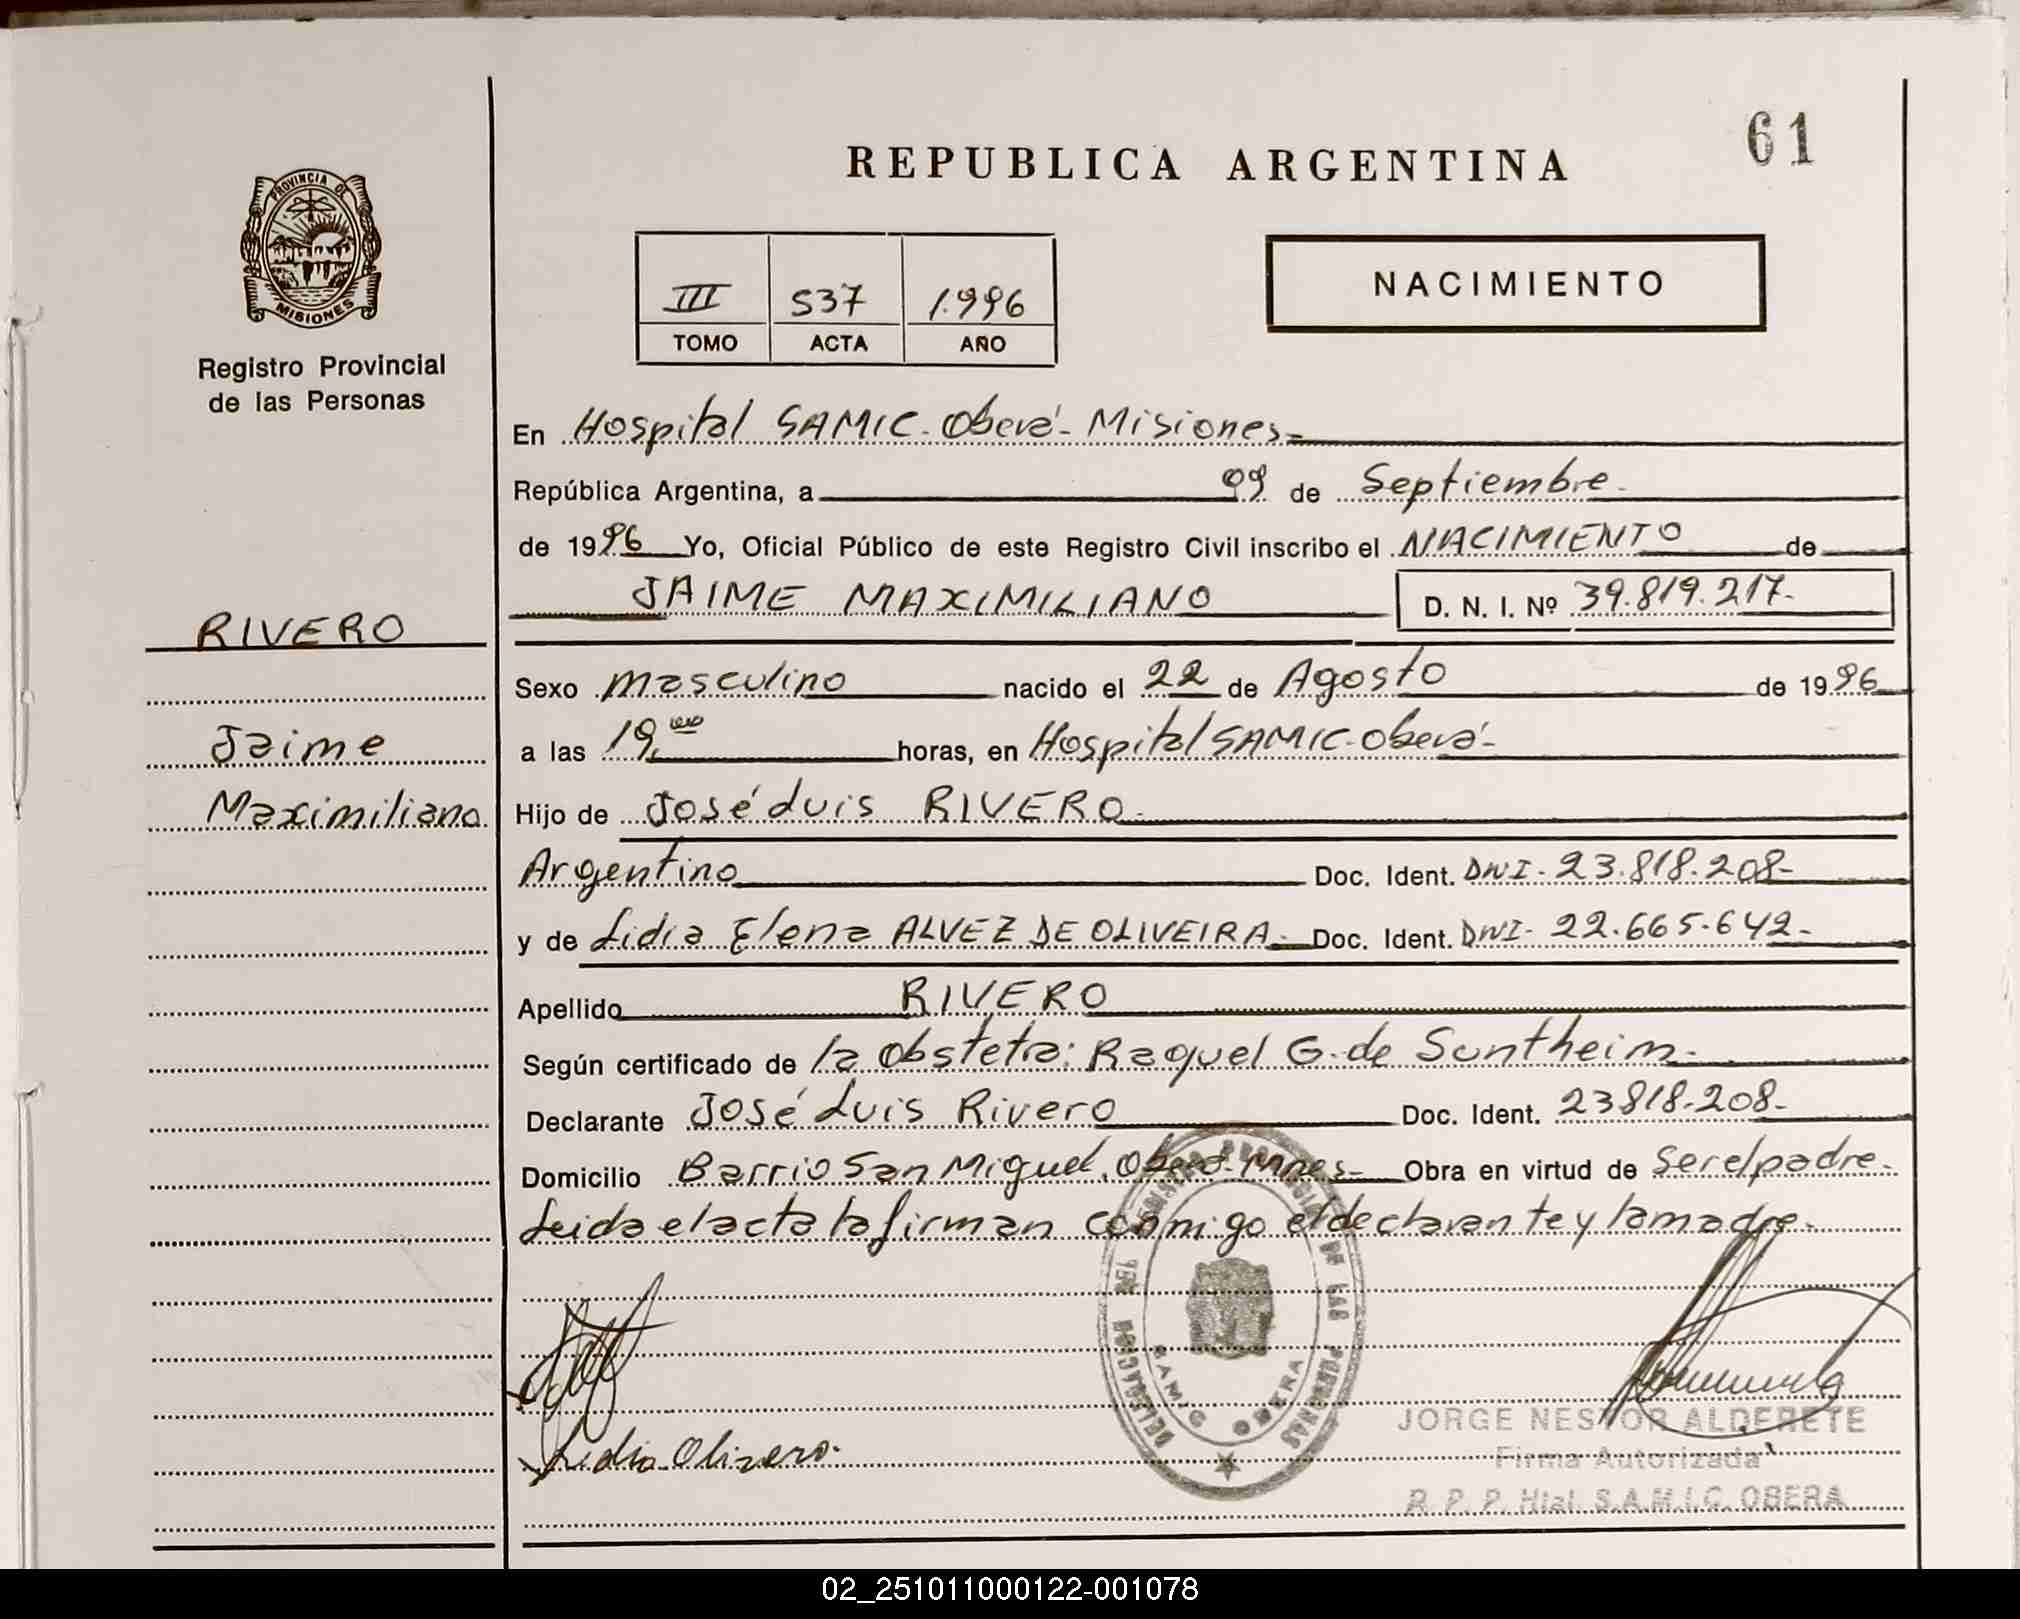 61
REPUBLICA ARGENTINA
PROVINCIA DE
MISIONES
Registro Provincial
de las Personas
NACIMIENTO
III 537 1.996
TOMO ACTA AÑO
En Hospital SAMIC - Oberá - Misiones -
República Argentina, a 09 de Septiembre
de 1996 Yo, Oficial Público de este Registro Civil inscribo el NACIMIENTO de
JAIME MAXIMILIANO D. N. I. Nº 39.819.217-
RIVERO
Jaime
Maximiliano
Sexo masculino nacido el 22 de Agosto de 1996
a las 19, horas, en Hospital SAMIC - Oberá -
Hijo de José Luis RIVERO
Argentino Doc. Ident. DNI - 23.818.208-
y de Lidia Elena ALVEZ DE OLIVEIRA - Doc. Ident. DNI - 22.665.642-
Apellido RIVERO
Según certificado de la obsteta: Raquel G. de Suntheim -
Declarante José Luis Rivero Doc. Ident. 23818.208-
Domicilio Barrio San Miguel. Oberá - Mnes - Obra en virtud de ser el padre -
Leida el acta la firman conmigo el declarante y la madre.
DELEGACION
DE LAS PERSONAS
SAMIC OBERA
JORGE NESTOR ALDERETE
Firma Autorizada
R. P. P. Htal. S.A.M.I.C. OBERA
02_251011000122-001078